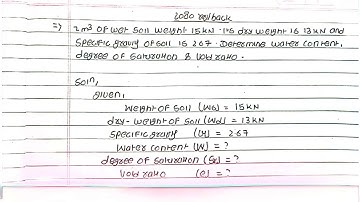 2080 Feedback
=> 2m³ of wet soil weight 15 kN. Its dry weight is 13 kN and
specific gravity of soil is 2.67. Determine water content,
degree of saturation & void ratio.
Soln,
given,
weight of soil (Ws) = 15 kN
dry-weight of soil (Wd) = 13 kN
specific gravity = 2.67
water content (W) = ?
degree of saturation (Sr) = ?
void ratio (e) = ?